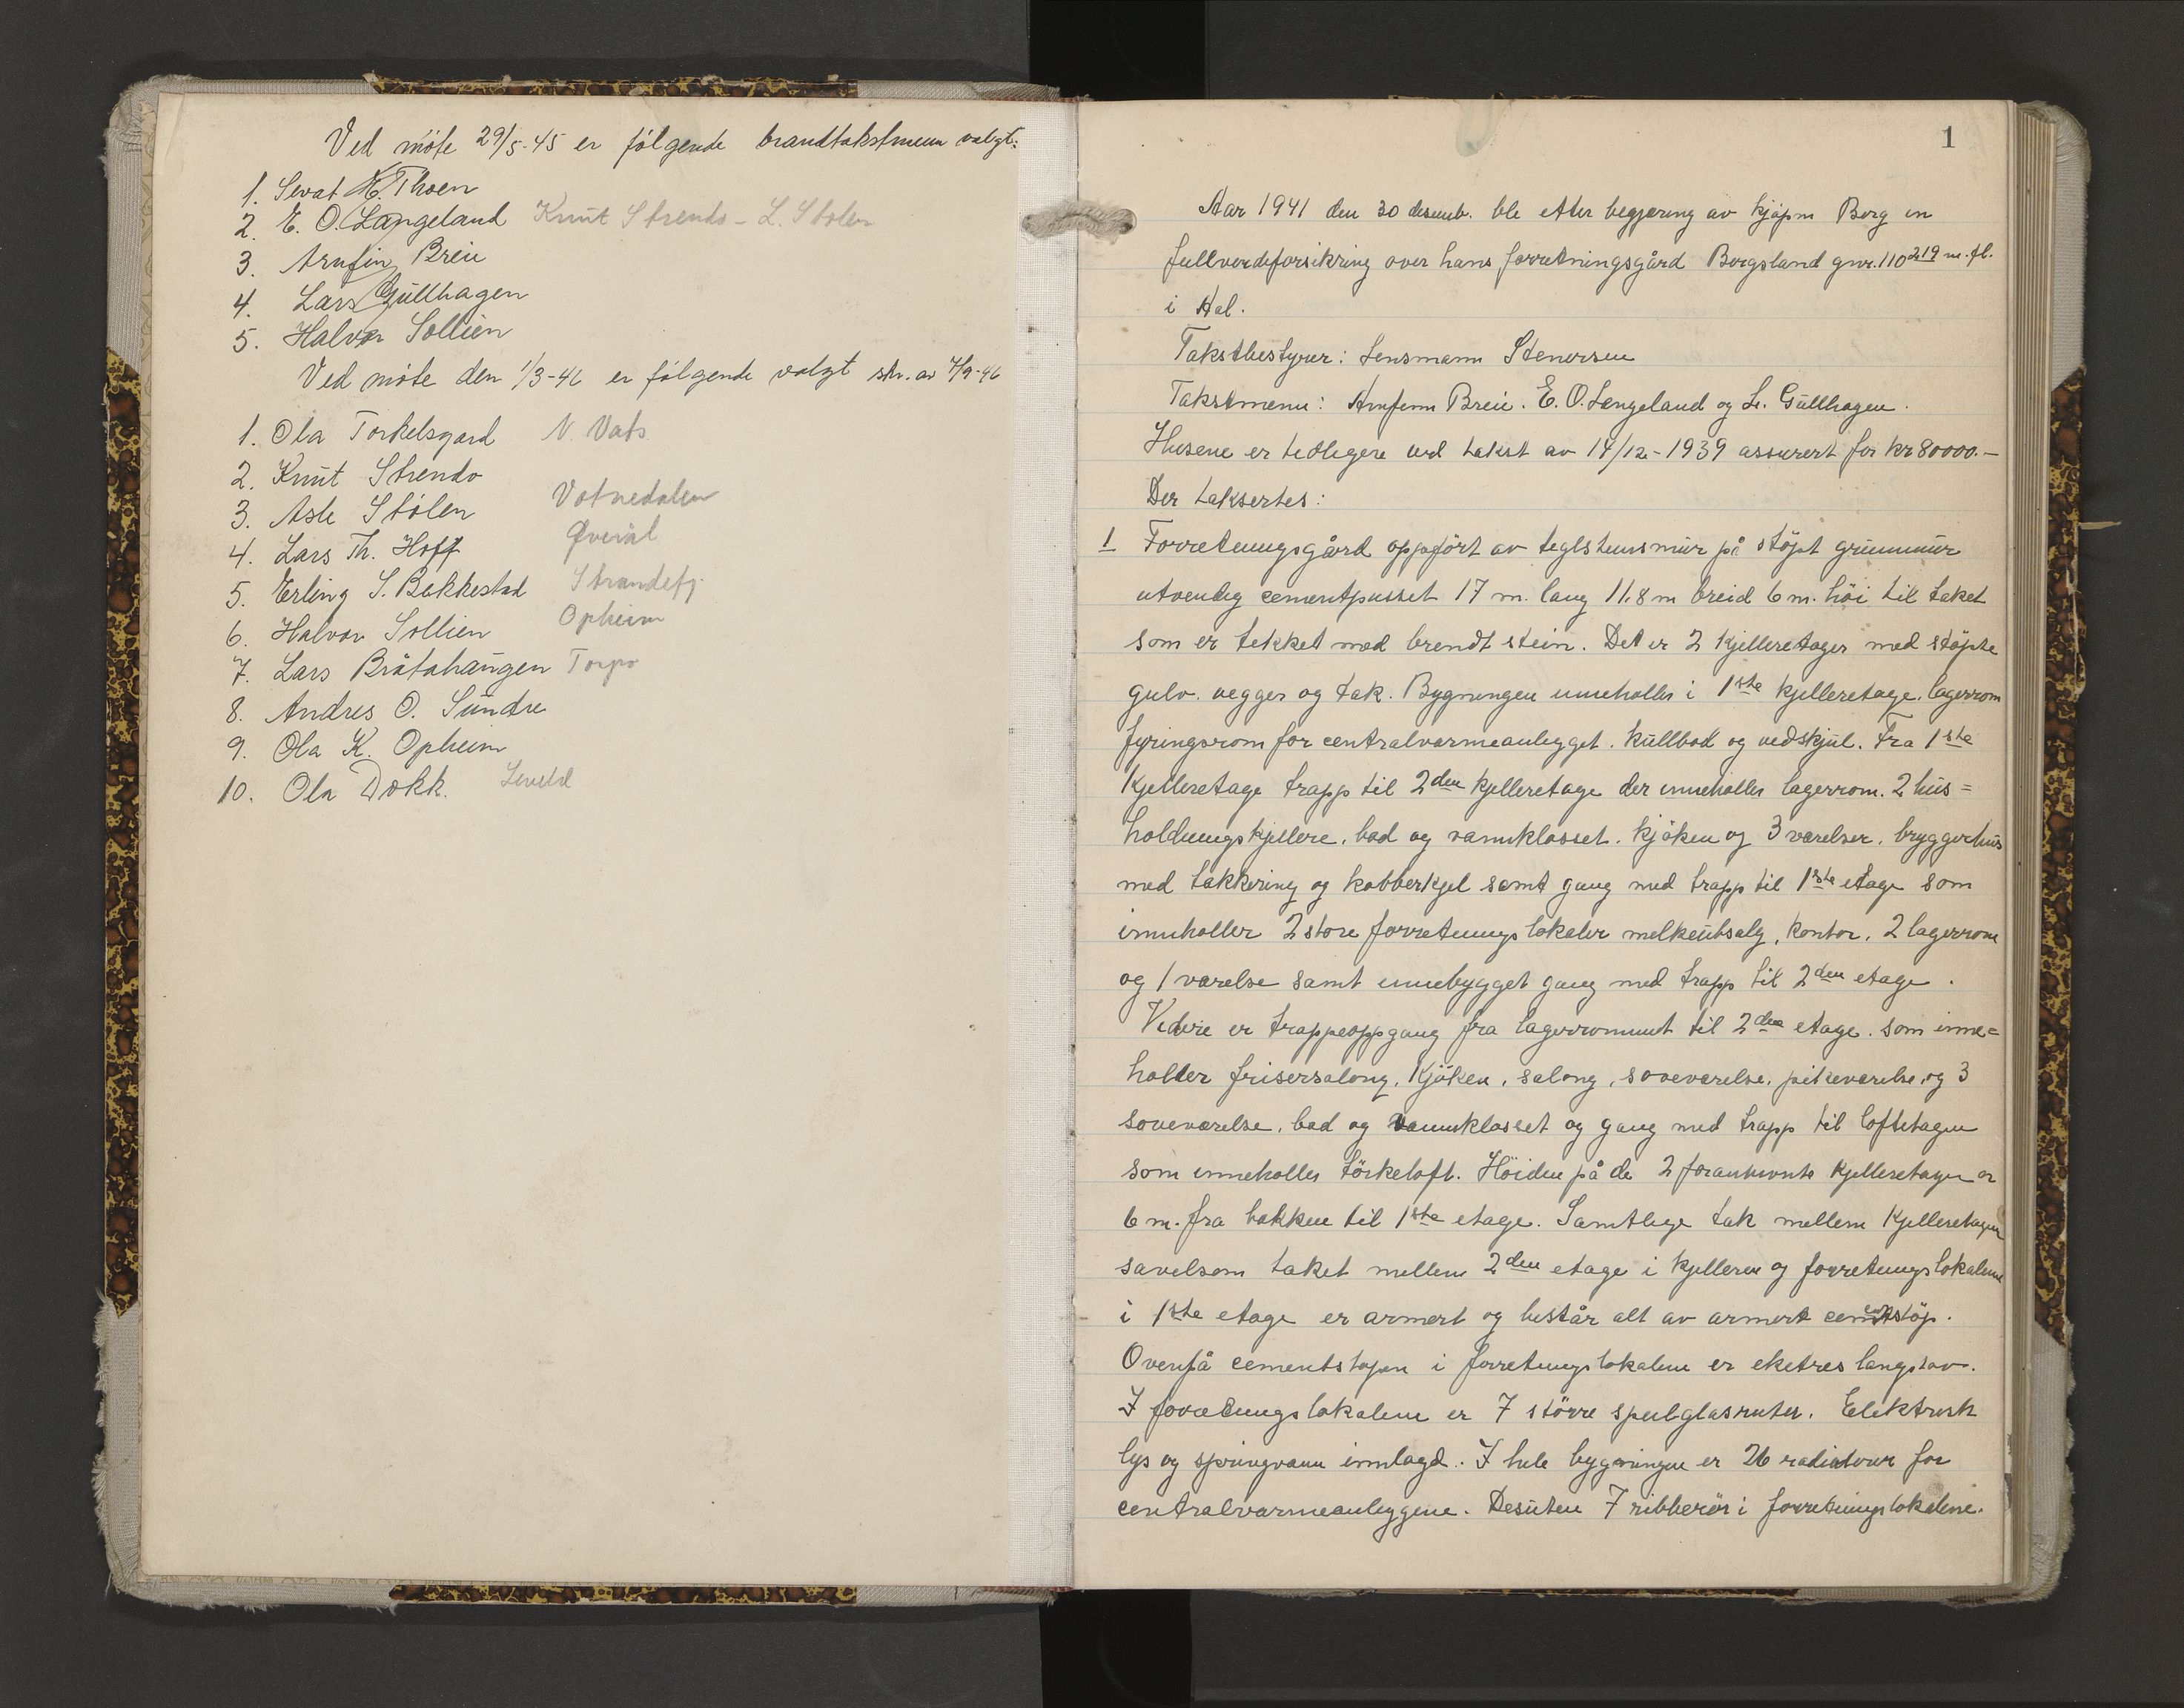 Ved möte 29/5-45 er fölgende brandtakstmenn valgt:
1. Sevat H. Thoen
2. E. O. Langeland Knut Strendo - L. Stolen
3. Arnfin Breie
4. Lars Gullhagen
5. Halvor Sollien
Ved möte den 1/3-46 er fölgende valgt skr. av 7/9-46
1. Ola Torkelsgard N. Vats
2. Knut Strendo
3. Asle Stölen Votnedalen
4. Lars Th. Hoff Øvreål
5. Erling S. Bakkestad Strandefj.
6. Halvor Sollien Opheim
7. Lars Bråtahaugen Torpo
8. Andres O. Sundre
9. Ola K. Opheim
10. Ola Dokk. Leveld
1
Aar 1941 den 30 desemb. ble etter begjæring av kjöpm Borg en
fullverdiforsikring over hans forretningsgård Borgsland gnr. 110 219 m. fl.
i Aal.
Takstbestyrer: Lensmann Stenersen
Takstmenn: Arnfinn Breie. E. O. Langeland og L. Gullhagen.
Husene er tidligere ved takst av 14/12-1939 assurert for kr 80000.-
Der taksertes:
1 Forretningsgård oppfört av teglstensmur på stöpt grunnmur
utvendig cementpusset 17 m. lang 11.8 m breid 6 m. höi til taket
som er tekket med brendt stein. Det er 2 kjelleretager med stöpte
gulv. vegger og tak. Bygningen inneholler i 1ste kjelleretage. lagerrom
fyringsrom for centralvarmeanlegget. kullbod og vedskjul. Fra 1ste
Kjelleretage trapp til 2den kjelleretage der inneholler lagerrom. 2 hus=
holdningskjellere. bad og vannklosset. kjöken og 3 værelser. bryggerhus
med takkering og kobberkjel samt gang med trapp til 1ste etage som
inneholler 2 store forretningslokaler melkeutsalg, kontor, 2 lagerrom
og 1 værelse samt innebygget gang med trapp til 2den etage.
Videre er trappeoppgang fra lagerrommet til 2den etage. som inne=
holler frisersalong. Kjöken, salong, soveværelse, pikeværelse, og 3
soveværelse, bad og vannklosset og gang med trapp til loftetagen
som inneholler törkeloft. Höiden på de 2 forannevnte kjelleretager er
6 m. fra bakken til 1ste etage. Samtlige tak mellem kjelleretagen
savelsom taket mellem 2den etage i kjelleren og forretningslokalene
i 1ste etage er armert og består alt av armert cementstöp.
Ovenpå cementstöpen i forretningslokalene er eketres langstav.
I forretningslokalene er 7 större speilglasruter. Elektrisk
lys og springvann innlagd. I hele bygningen er 26 radiatorer for
centralvarmeanleggene. Desuten 7 ribberör i forretningslokalene.